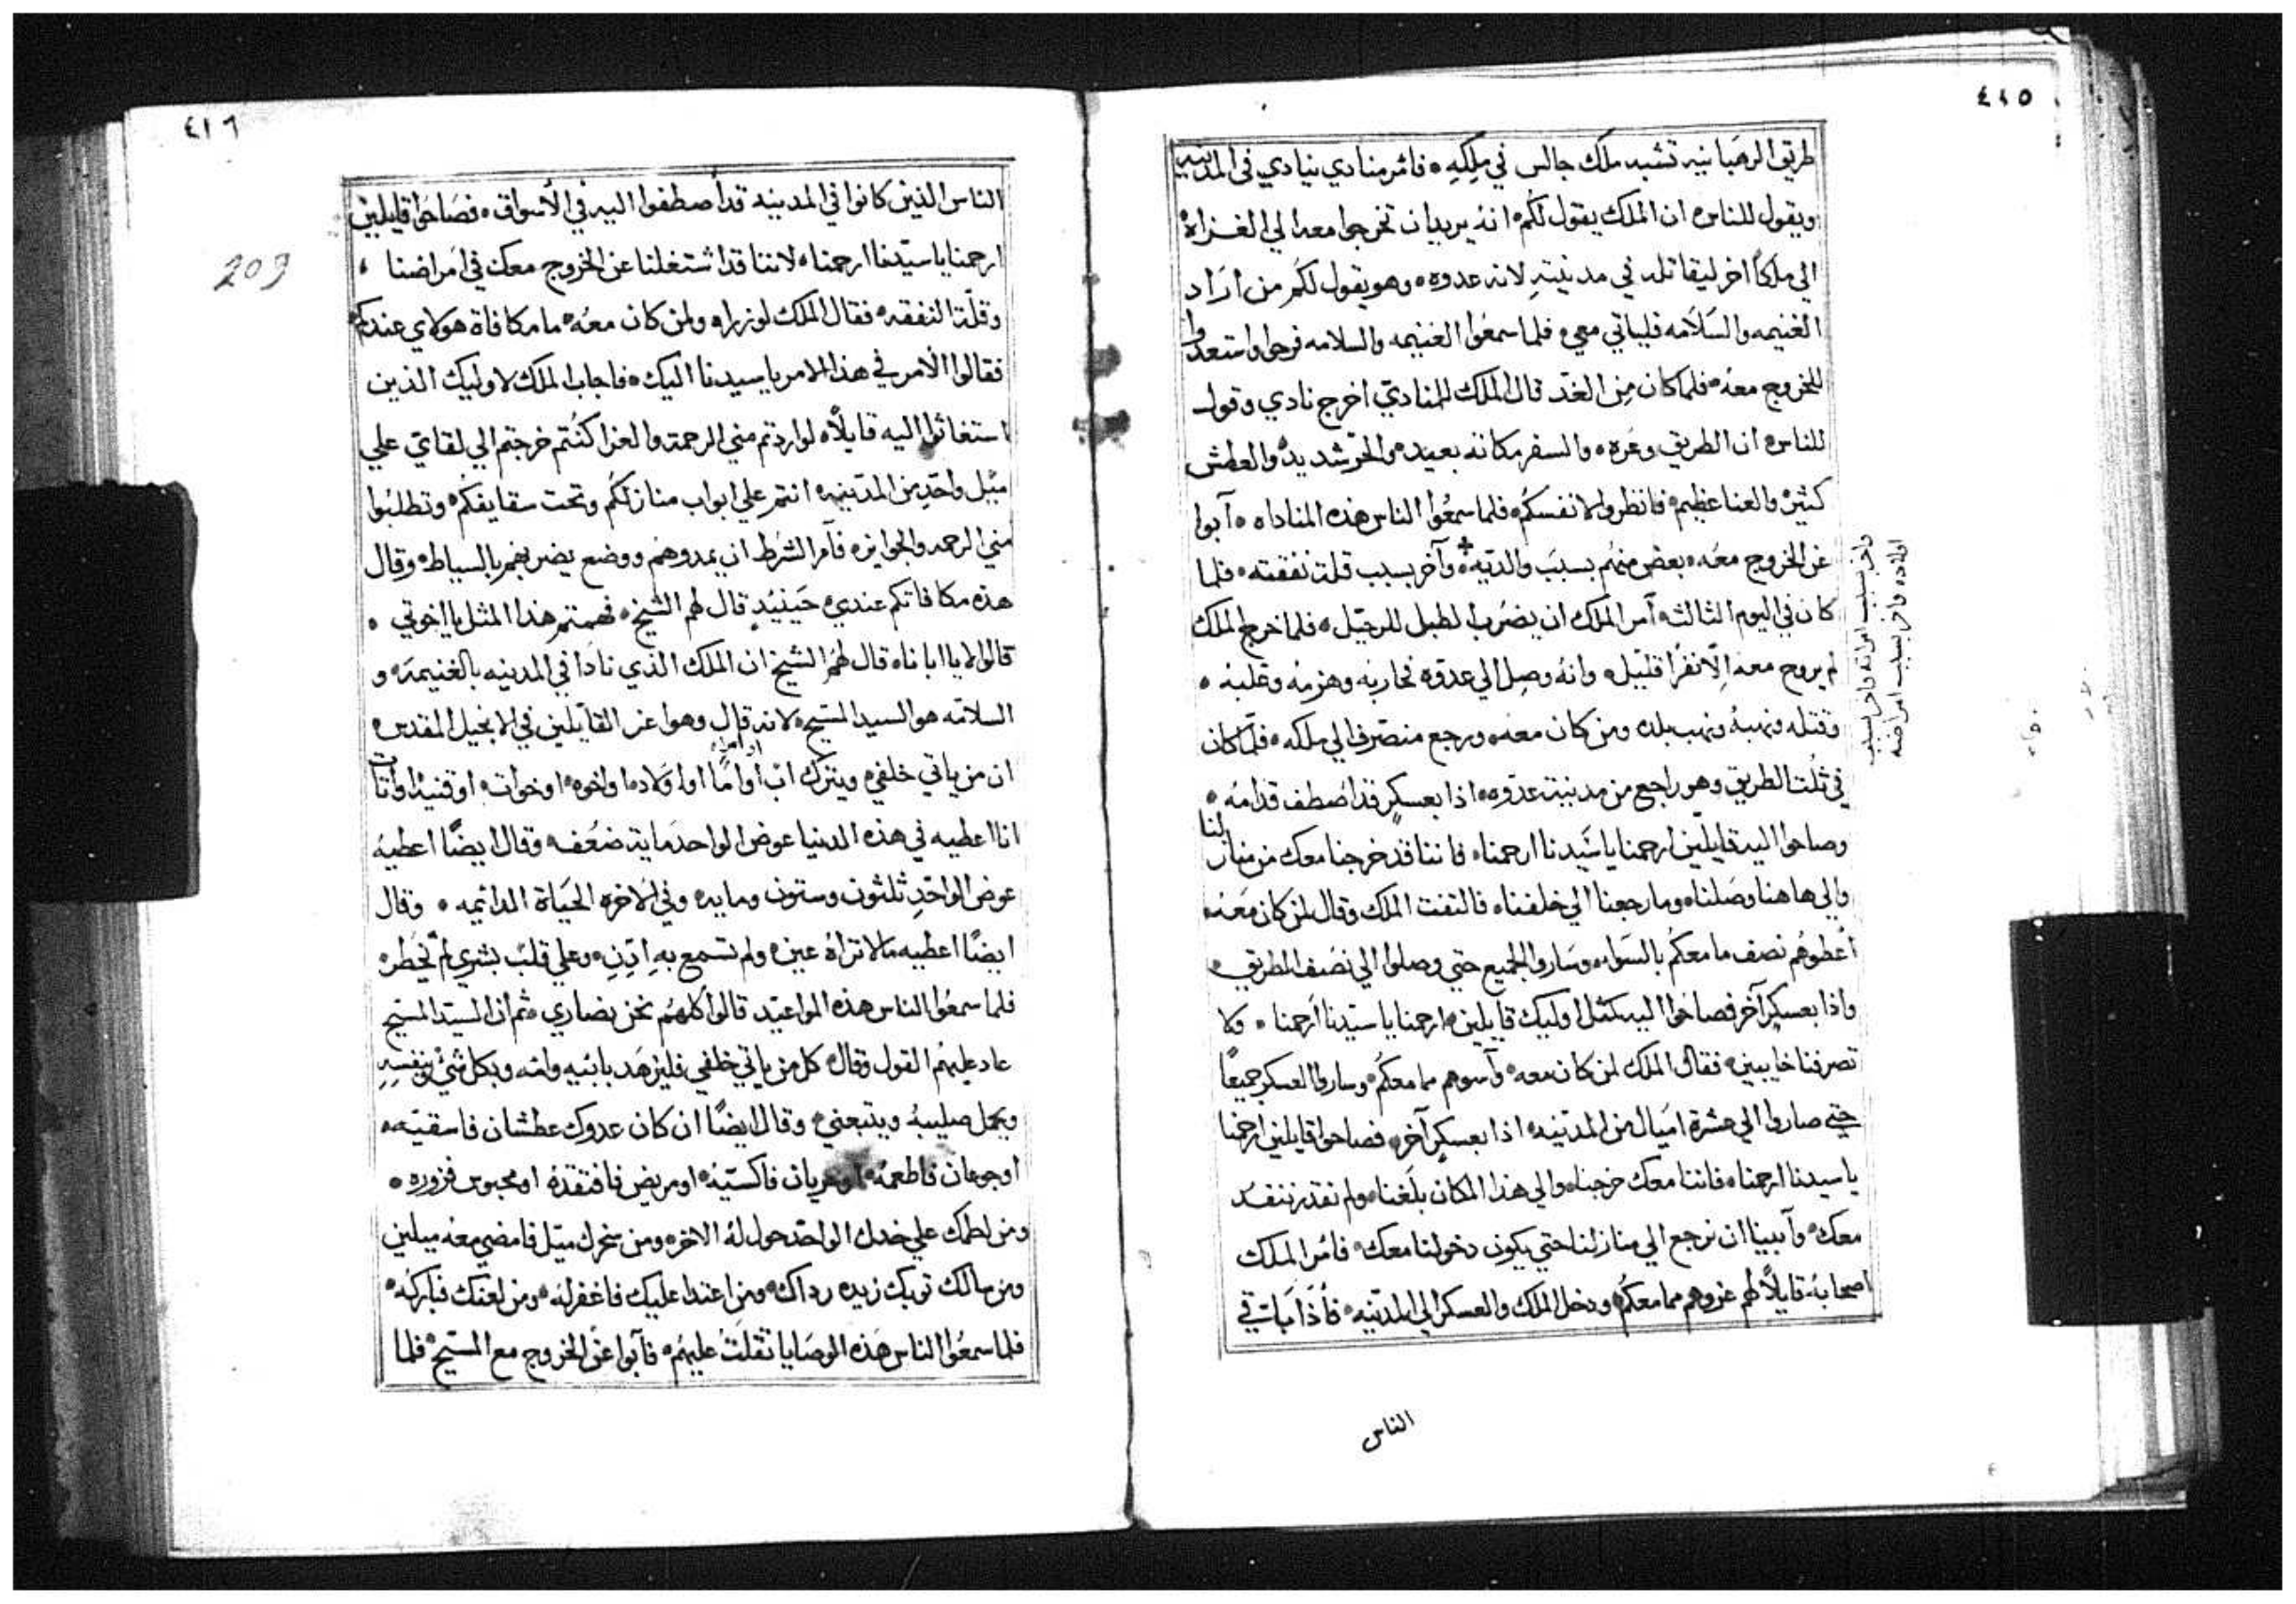 ٤١٥
طريق الرهبانيه تشبه ملك جالس في ملكه ٠ فامر منادي ينادي في المدينه
ويقول للناس ٠ ان الملك يقول لكم ٠ انه يريد ان تخرجوا معه الي الغزاه
الي ملكاً اخر ليقاتله في مدينته لانه عدوه ٠ وهو يقول لكم من اراد
الغنيمه والسلامه فلياتي معي ٠ فلما سمعوا الغنيمه والسلامه فرحوا واستعدوا
للخروج معه ٠ فلما كان من الغد قال الملك للمنادي اخرج نادي وقول
للناس ٠ ان الطريق وعره ٠ والسفر مكانه بعيد ٠ والحر شديد ٠ والعطش
كثير ٠ والعنا عظيم ٠ فانظروا لانفسكم ٠ فلما سمعوا الناس هذه المناداه ٠ آبوا
عن الخروج معه ٠ بعض منهم بسبب والديه ٠ + وآخر بسبب قلت نفقته ٠ فلما
واخر بسبب امراته واخر بسبب
اولاده واخر بسبب امراضه
كان في اليوم الثالث ٠ آمر الملك ان يضرب الطبل للرحيل ٠ فلما خرج الملك
لم يروح معه إلّا نفراً قليل ٠ وانه وصل الي عدوه فحاربه وهزمه وغلبه ٠
وقتله ونهبه ونهب بلده ومن كان معه ٠ ورجع منصرف الي ملكه ٠ فلما كان
في ثلت الطريق وهو راجع من مدينة عدوه ٠ اذا بعسكرٍ قد اصطف قدامه ٠
وصاحوا اليه قايلين ارحمنا يا سيدنا ارحمنا ٠ فاننا قد خرجنا معك من منازلنا
والي هاهنا وصلنا ٠ وما رجعنا الي خلفنا ٠ فالتفت الملك وقال لمن كان معه ٠
أعطوهم نصف ما معكم بالسوا ٠ وساروا الجميع حتي وصلوا الي نصف الطريق ٠
واذا بعسكر آخر فصاحوا اليه كمثل اوليك قايلين ٠ ارحمنا يا سيدنا ارحمنا ٠ ولا
تصرفنا خايبين ٠ فقال الملك لمن كان معه ٠ وآسوهم مما معكم ٠ وساروا العسكر جميعاً
حتي صاروا الي عشرة اميال من المدينه ٠ اذا بعسكر آخر ٠ فصاحوا قايلين ارحمنا
يا سيدنا ارحمنا ٠ فاننا معك خرجنا ٠ والي هذا المكان بلغنا ٠ ولم نقدر ننفد
معك ٠ وآبينا ان نرجع الي منازلنا حتي يكون دخولنا معك ٠ فامر الملك
اصحابه قايلاً لهم عزوهم مما معكم ٠ ودخل الملك والعسكر الي المدينه ٠ فأذا بباقي
الناس
٤١٦
209
الناس الذين كانوا في المدينه قد أصطفوا اليه في الأسواق ٠ فصاحوا قايلين
ارحمنا يا سيدنا ارحمنا ٠ لاننا قد اشتغلنا عن الخروج معك في امراضنا ٠
وقلّت النفقه ٠ فقال الملك لوزراه ولمن كان معه ٠ ما مكافاة هولاي عندكم ٠
فقالوا الامر في هذا الامر يا سيدنا اليك ٠ فاجاب الملك لاوليك الذين
استغاثوا اليه قايلاً ٠ لو اردتم مني الرحمة والعزا كنتم خرجتم الي لقاي علي
ميل واحد من المدينه ٠ انتم علي ابواب منازلكم وتحت سقايفكم ٠ وتطلبوا
مني الرحمه والجوايز ٠ فآمر الشرط ان يمدوهم ووضع يضربهم بالسياط ٠ وقال
هذه مكافاتكم عندي ٠ حينيدٍ قال لهم الشيخ ٠ فهمتم هذا المثل يا اخوتي ٠
قالوا لا يا ابانا ٠ قال لهم الشيخ ان الملك الذي نادا في المدينه بالغنيمه ٠ و
السلامه هو السيد المسيح ٠ لانه قال وهو اعز القايلين في الانجيل المقدس ٠
ان من ياتي خلفي ويترك اب أو اماً او اولاد ٠ او اخوه ٠ او خوات ٠ او قنيه
انا اعطيه في هذه الدنيا عوض الواحد ماية ضعف ٠ وقال ايضاً اعطيه
عوض الواحد ثلثون وستون ومايه ٠ وفي الاخره الحياة الدائمه ٠ وقال
ايضاً اعطيه ما لا تراه عين ٠ ولم تسمع به إذن ٠ وعلي قلب بشري لم يخطر ٠
فلما سمعوا الناس هذه المواعيد قالوا كلهم نحن نصاري ٠ ثم ان السيد المسيح
عاد عليهم القول وقال ٠ كل من ياتي خلفي فليزهد بابيه وامه وبكل شي وبنفسه
ويحمل صليبه ويتبعني ٠ وقال ايضاً ان كان عدوك عطشان فاسقيه ٠
او جوعان فاطعمه ٠ او عريان فاكسيه ٠ او مريض فافتقده او محبوس فزوره ٠
ومن لطمك علي خدك الواحد حول له الاخر ٠ ومن سخرك ميل فامضي معه ميلين
ومن سالك توبك زيده رداك ٠ ومن اعتدا عليك فاغفر له ٠ ومن لعنك فباركه ٠
فلما سمعوا الناس هذه الوصايا ثقلت عليهم ٠ فآبوا عن الخروج مع المسيح ٠ فلما